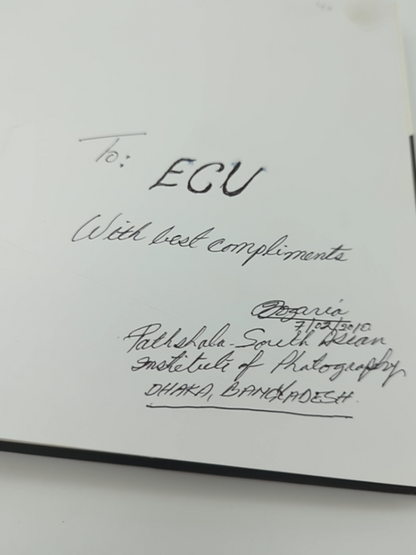 To: ECU
With best compliments
7/02/2010
Pathshala-South Asian
Institute of Photography
DHAKA, BANGLADESH.